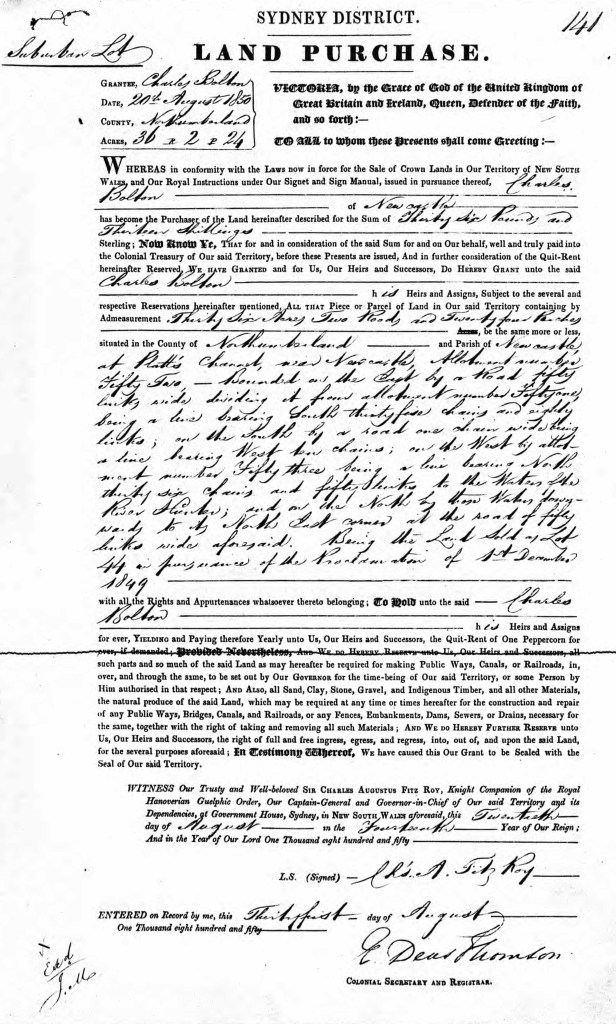 SYDNEY DISTRICT.
141
Suburban Lot
LAND PURCHASE.
GRANTEE, Charles Bolton
DATE, 20th August 1850
COUNTY, Northumberland
ACRES, 36 R 2 P 24
VICTORIA, by the Grace of God of the United Kingdom of
Great Britain and Ireland, Queen, Defender of the Faith,
and so forth:—
TO ALL to whom these Presents shall come Greeting:—
WHEREAS in conformity with the Laws now in force for the Sale of Crown Lands in Our Territory of NEW SOUTH
WALES, and Our Royal Instructions under Our Signet and Sign Manual, issued in pursuance thereof, Charles
Bolton of Newcastle
has become the Purchaser of the Land hereinafter described for the Sum of Thirty Six Pounds and
Thirteen Shillings
Sterling; Now Know Ye, THAT for and in consideration of the said Sum for and on Our behalf, well and truly paid into
the Colonial Treasury of Our said Territory, before these Presents are issued, And in further consideration of the Quit-Rent
hereinafter Reserved, WE HAVE GRANTED and for Us, Our Heirs and Successors, DO HEREBY GRANT unto the said
Charles Bolton
his Heirs and Assigns, Subject to the several and
respective Reservations hereinafter mentioned, ALL THAT Piece or Parcel of Land in Our said Territory containing by
Admeasurement Thirty Six Acres Two Roods and Twenty four Perches
Acres, be the same more or less,
situated in the County of Northumberland and Parish of Newcastle
at Platt's Channel, near Newcastle, Allotment number
Fifty Two, — Bounded on the East by a Road fifty
links wide dividing it from allotment number Fifty one,
being a line bearing South thirty four chains and eighty
links; on the South by a road one chain wide being
a line bearing West ten chains; on the West by allot-
ment number Fifty three being a line bearing North
thirty six chains and fifty links to the Waters of the
River Hunter; and on the North by those Waters down-
wards to its North East corner at the road of fifty
links wide aforesaid. Being the Land Sold as Lot
44 in pursuance of the Proclamation of 1st December
1849
with all the Rights and Appurtenances whatsoever thereto belonging; To Hold unto the said — Charles
Bolton his Heirs and Assigns
for ever, YIELDING and Paying therefore Yearly unto Us, Our Heirs and Successors, the Quit-Rent of One Peppercorn for
ever, if demanded; Provided Nevertheless, AND WE DO HEREBY RESERVE unto Us, Our Heirs and Successors, all
such parts and so much of the said Land as may hereafter be required for making Public Ways, Canals, or Railroads, in,
over, and through the same, to be set out by Our GOVERNOR for the time-being of Our said Territory, or some Person by
Him authorised in that respect; AND ALSO, all Sand, Clay, Stone, Gravel, and Indigenous Timber, and all other Materials,
the natural produce of the said Land, which may be required at any time or times hereafter for the construction and repair
of any Public Ways, Bridges, Canals, and Railroads, or any Fences, Embankments, Dams, Sewers, or Drains, necessary for
the same, together with the right of taking and removing all such Materials; AND WE DO HEREBY FURTHER RESERVE unto
Us, Our Heirs and Successors, the right of full and free ingress, egress, and regress, into, out of, and upon the said Land,
for the several purposes aforesaid; In Testimony Whereof, WE have caused this Our Grant to be Sealed with the
Seal of Our said Territory.
WITNESS Our Trusty and Well-beloved SIR CHARLES AUGUSTUS FITZ ROY, Knight Companion of the Royal
Hanoverian Guelphic Order, Our Captain-General and Governor-in-Chief of Our said Territory and its
Dependencies, at Government House, Sydney, in NEW SOUTH WALES aforesaid, this Twentieth
day of August in the Fourteenth Year of Our Reign;
And in the Year of Our Lord One Thousand eight hundred and fifty
L.S. (Signed) — Chs. A. Fitz Roy
ENTERED on Record by me, this Thirty first day of August
One Thousand eight hundred and fifty
E. Deas Thomson
COLONIAL SECRETARY AND REGISTRAR.
Exd
J.M